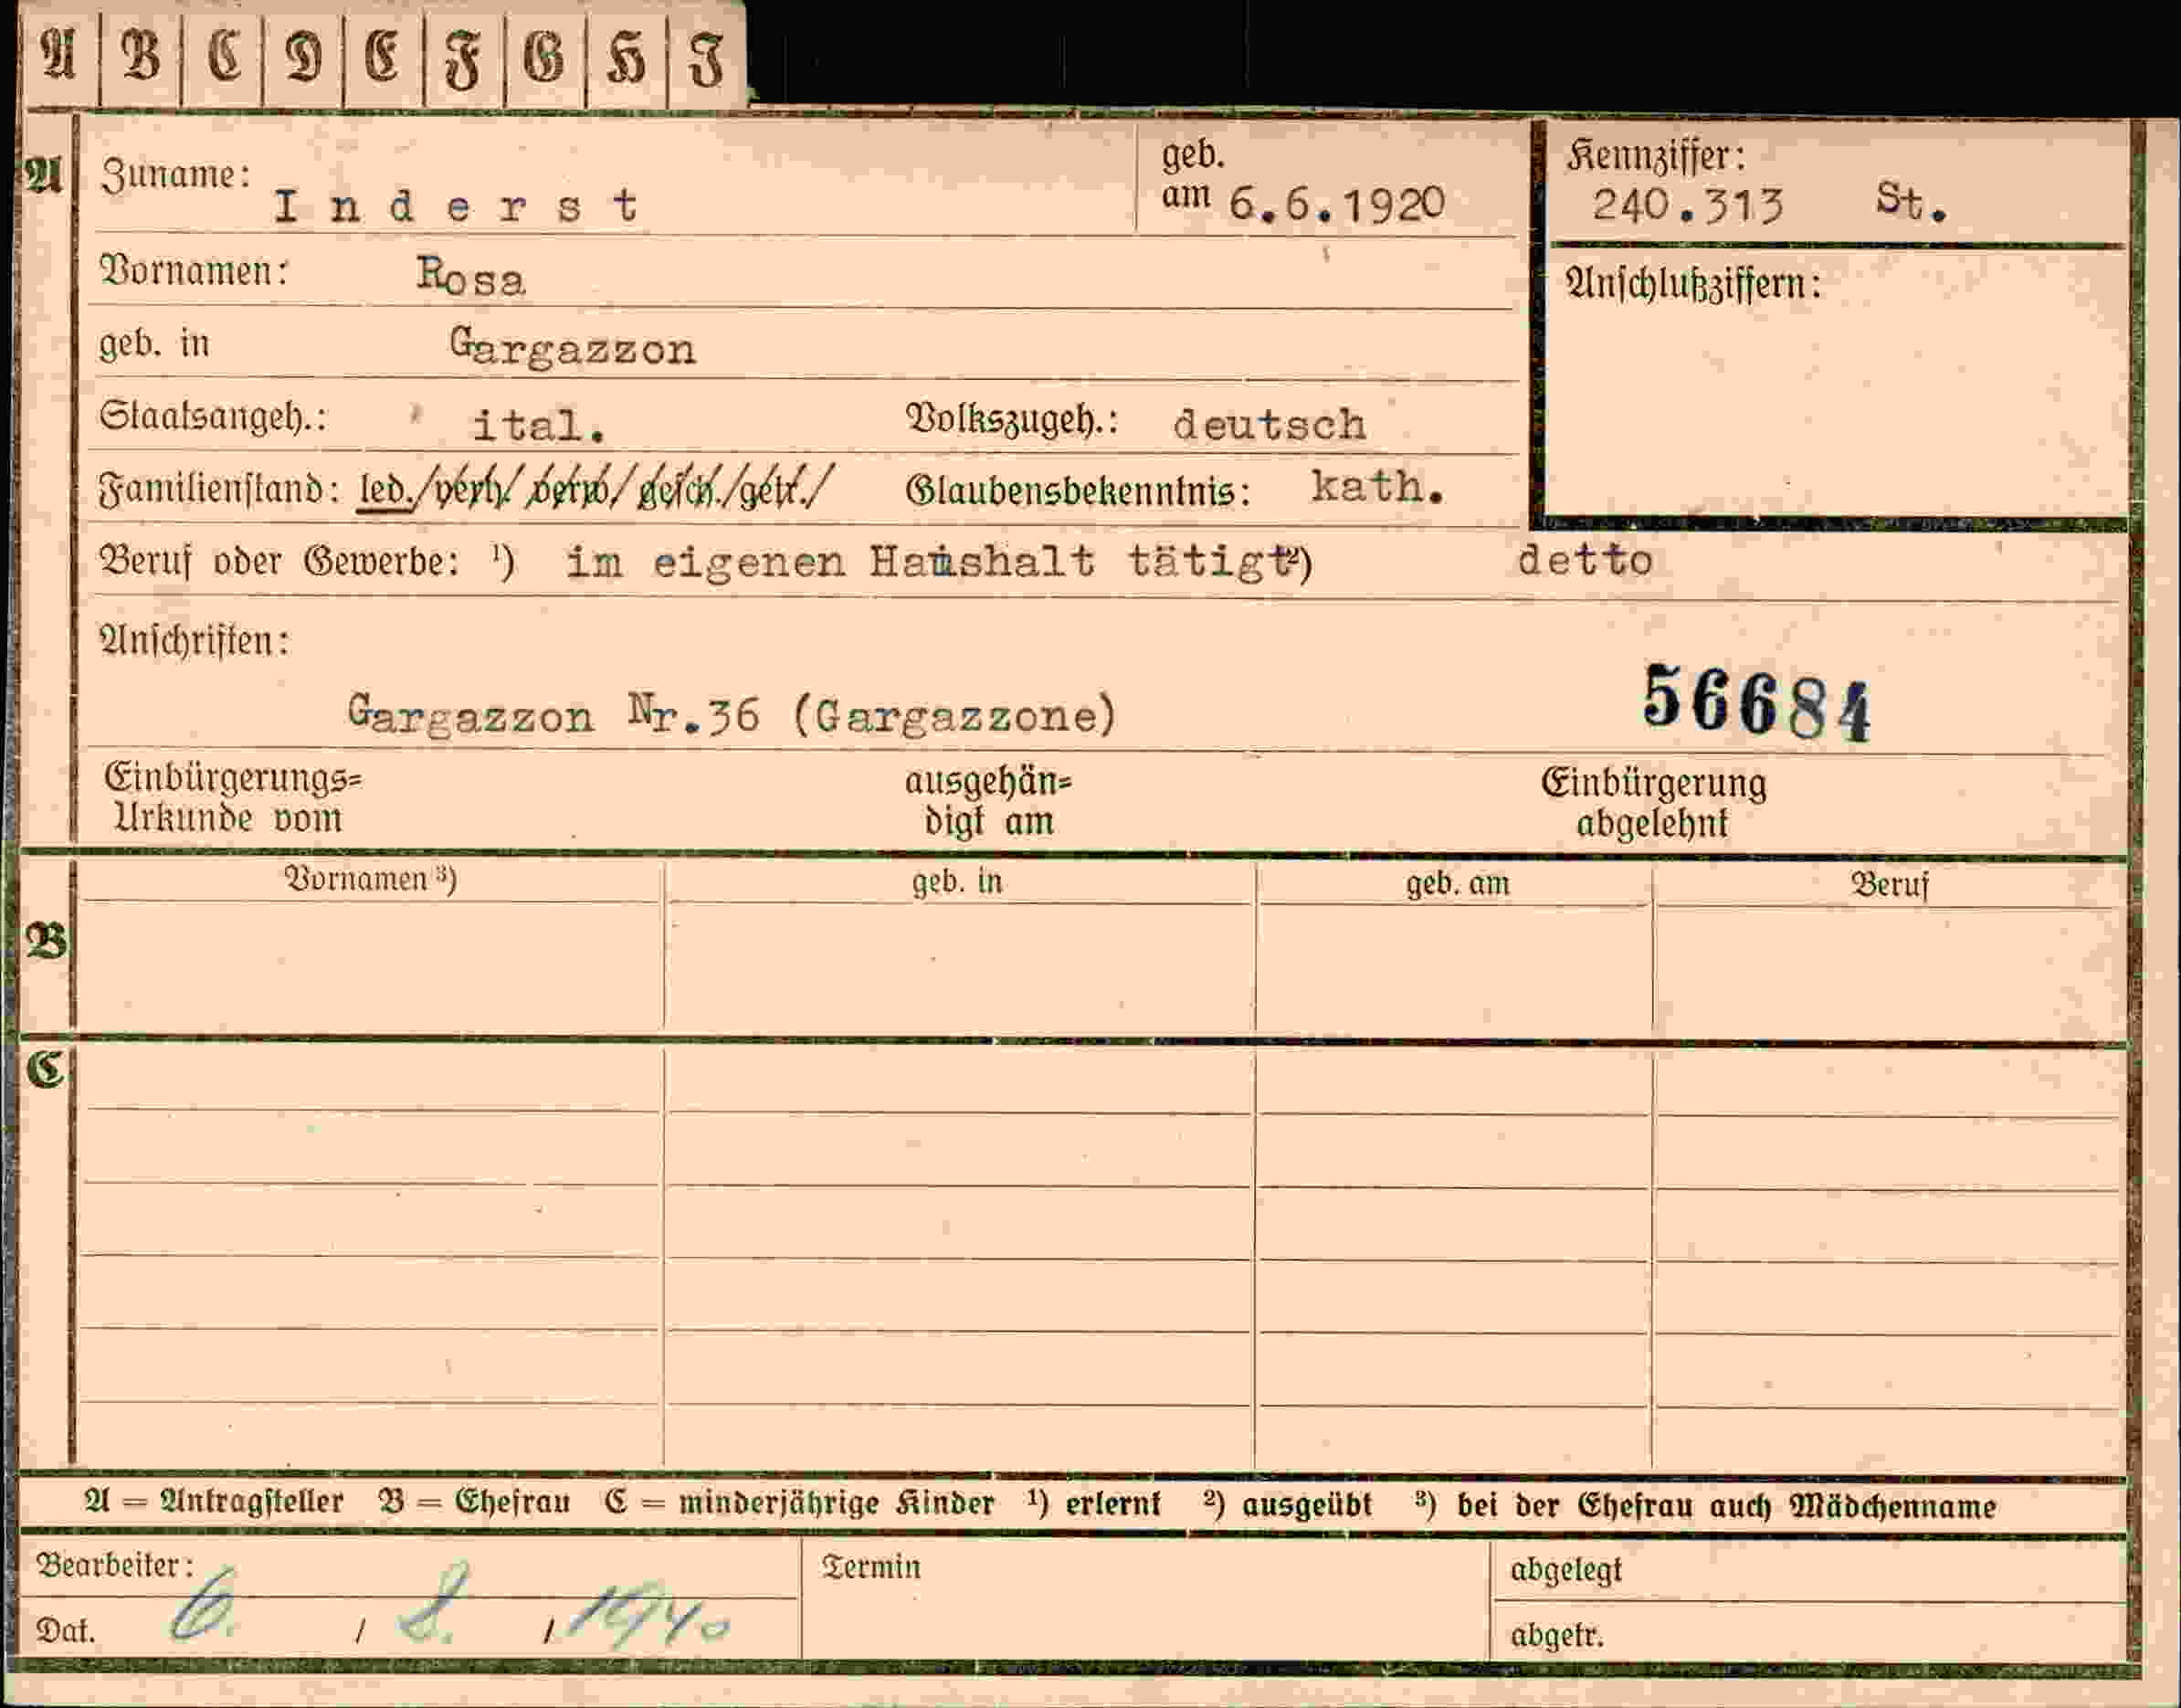 A B C D E F G H I
A
Zuname: Inderst
geb. am 6.6.1920
Kennziffer: 240.313 St.
Vornamen: Rosa
Anschlußziffern:
geb. in Gargazzon
Staatsangeh.: ital. Volkszugeh.: deutsch
Familienstand: led./verh/ verw/ gesch./getr./ Glaubensbekenntnis: kath.
Beruf oder Gewerbe: ¹) im eigenen Haushalt tätigt²) detto
Anschriften:
Gargazzon Nr.36 (Gargazzone) 56684
Einbürgerungs= ausgehän= Einbürgerung
Urkunde vom digt am abgelehnt
Vornamen ³) geb. in geb. am Beruf
B
C
A = Antragsteller B = Ehefrau C = minderjährige Kinder ¹) erlernt ²) ausgeübt ³) bei der Ehefrau auch Mädchenname
Bearbeiter: Termin abgelegt
Dat. 6. / 8. / 1940 abgetr.